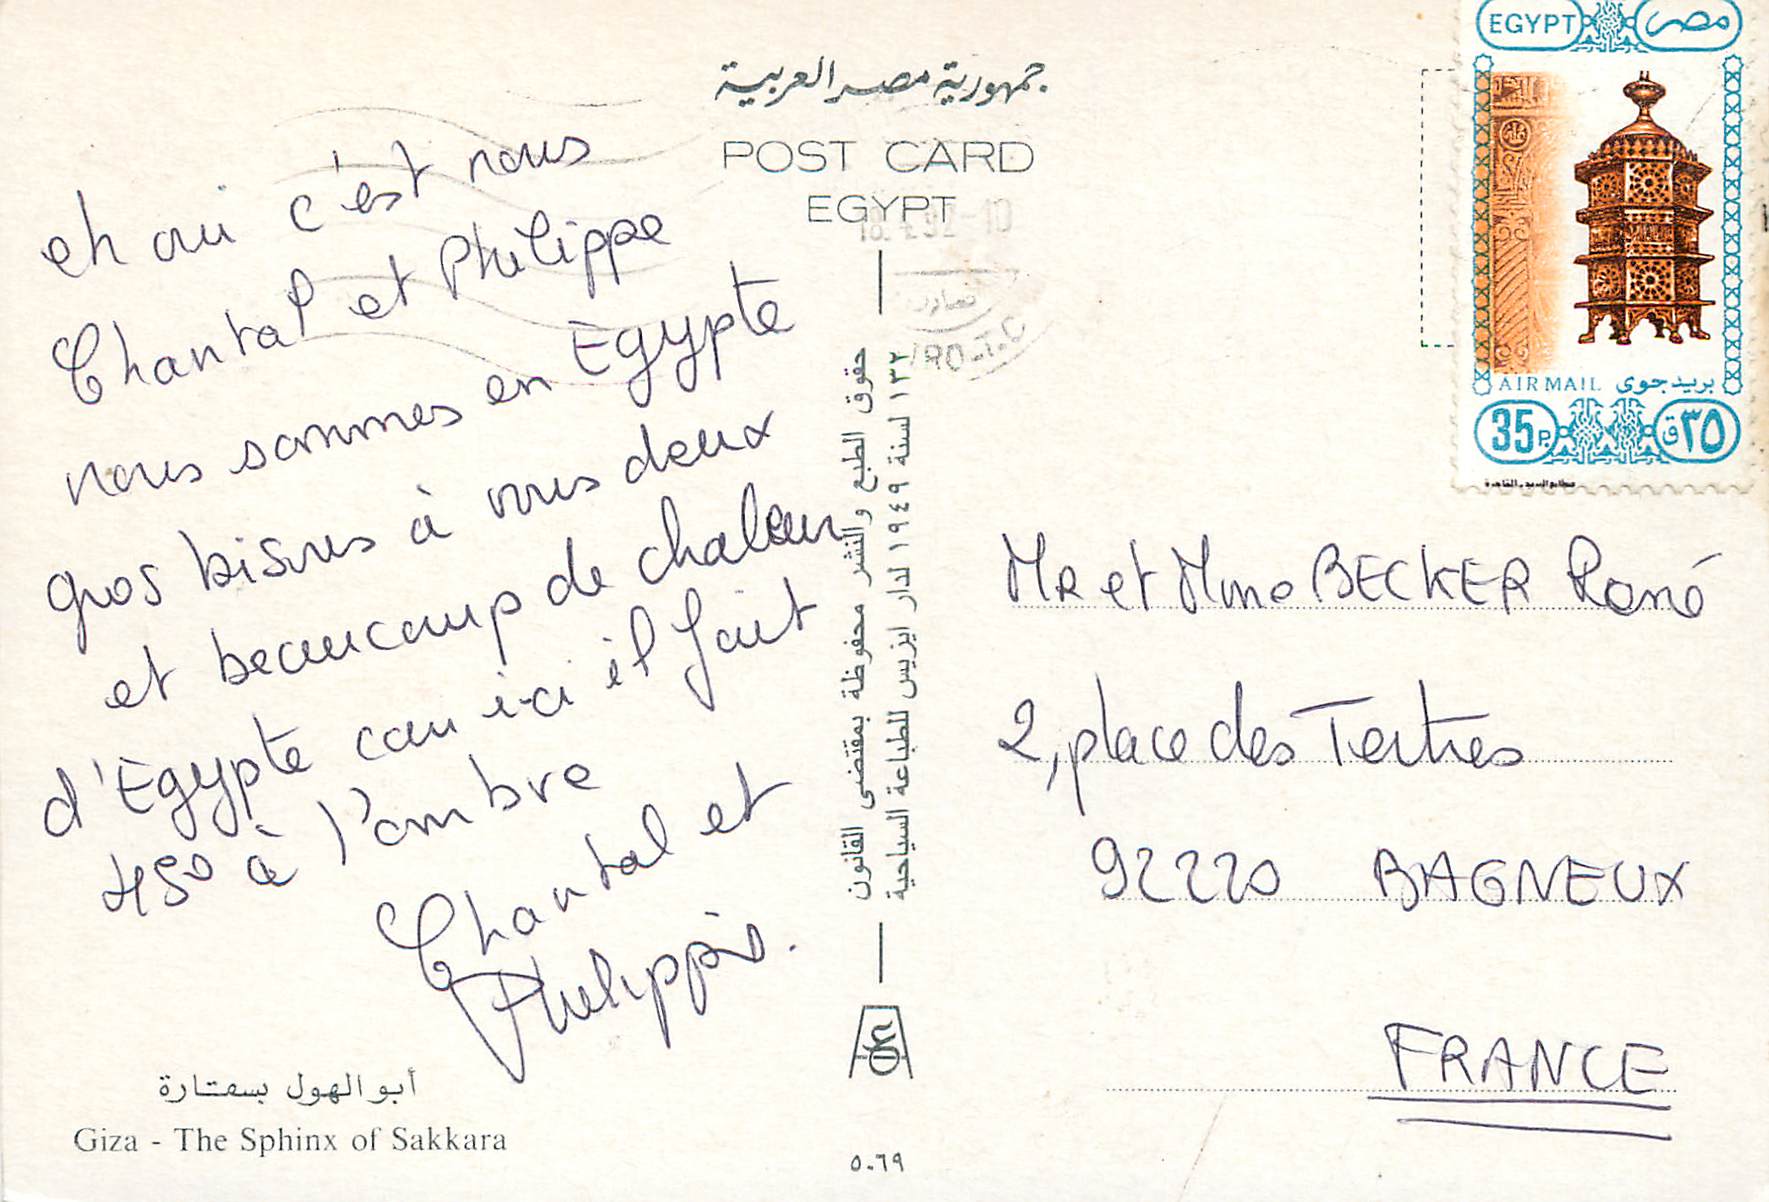 جمهورية مصر العربية
POST CARD
EGYPT
eh oui c'est nous
Chantal et Philippe
nous sommes en Egypte
gros bisous à vous deux
et beaucoup de chaleur
d'Egypte car ici il fait
45° à l'ombre
Chantal et
Philippe.
أبو الهول بسقارة
Giza - The Sphinx of Sakkara
حقوق الطبع والنشر محفوظة بمقتضى القانون
١٣٢ لسنة ١٩٤٩ لدار ايزيس للطباعة السياحية
٥٠٦٩
EGYPT مصر
AIR MAIL بريد جوى
35 P. ٣٥ ق
92-10
Mr et Mme BECKER René
2, place des Tertres
92220 BAGNEUX
FRANCE